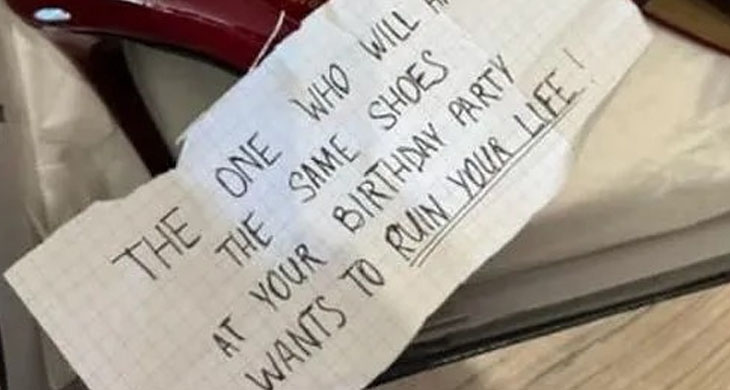 THE ONE WHO WILL
THE SAME SHOES
AT YOUR BIRTHDAY PARTY
WANTS TO RUIN YOUR LIFE!